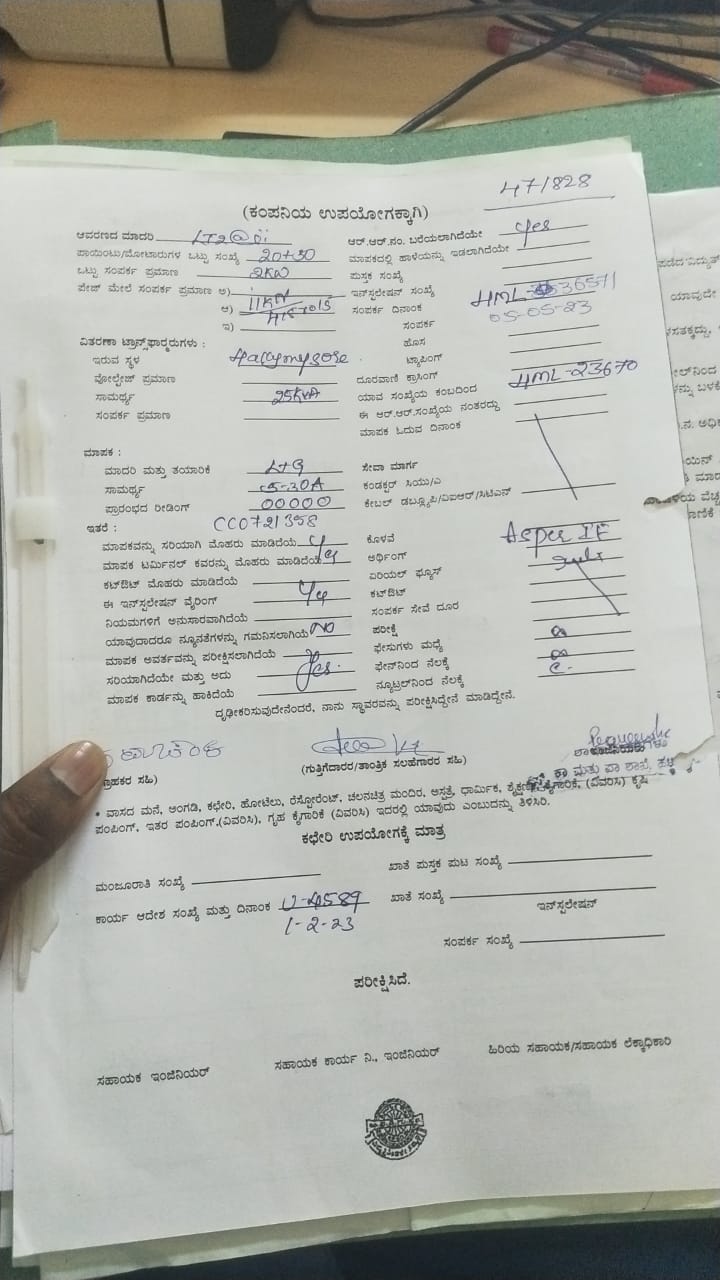 47/828
(ಕಂಪನಿಯ ಉಪಯೋಗಕ್ಕಾಗಿ)
ಆವರಣದ ಮಾದರಿ LT2@ii
ಆರ್.ಆರ್.ನಂ. ಬರೆಯಲಾಗಿದೆಯೇ yes
ಪಾಯಿಂಟು/ಮೋಟಾರುಗಳ ಒಟ್ಟು ಸಂಖ್ಯೆ 20+30
ಮಾಪಕದಲ್ಲಿ ಹಾಳೆಯನ್ನು ಇಡಲಾಗಿದೆಯೇ
ಒಟ್ಟು ಸಂಪರ್ಕ ಪ್ರಮಾಣ 2KW
ಪುಸ್ತಕ ಸಂಖ್ಯೆ
ಪೇಜ್ ಮೇಲೆ ಸಂಪರ್ಕ ಪ್ರಮಾಣ ಅ)
ಇನ್‌ಸ್ಟಲೇಷನ್ ಸಂಖ್ಯೆ HML-36571
ಆ) 11KV
ಸಂಪರ್ಕ ದಿನಾಂಕ 05-05-23
ಇ)
ಸಂಪರ್ಕ
ವಿತರಣಾ ಟ್ರಾನ್ಸ್‌ಫಾರ್ಮರುಗಳು :
ಹೊಸ
ಇರುವ ಸ್ಥಳ Halymysore
ಟ್ಯಾಪಿಂಗ್
ವೋಲ್ಟೇಜ್ ಪ್ರಮಾಣ
ದೂರವಾಣಿ ಕ್ರಾಸಿಂಗ್
ಸಾಮರ್ಥ್ಯ 25KVA
ಯಾವ ಸಂಖ್ಯೆಯ ಕಂಬದಿಂದ HML-23670
ಸಂಪರ್ಕ ಪ್ರಮಾಣ
ಈ ಆರ್.ಆರ್.ಸಂಖ್ಯೆಯ ನಂತರದ್ದು
ಮಾಪಕ ಓದುವ ದಿನಾಂಕ
ಮಾಪಕ :
ಮಾದರಿ ಮತ್ತು ತಯಾರಿಕೆ L+G
ಸೇವಾ ಮಾರ್ಗ
ಸಾಮರ್ಥ್ಯ 5-30A
ಕಂಡಕ್ಟರ್ ಸಿಯು/ಎ
ಪ್ರಾರಂಭದ ರೀಡಿಂಗ್ 00000
ಕೇಬಲ್ ಡಬ್ಲ್ಯೂಪಿ/ವಿಐಆರ್/ಸಿಟಿಎಸ್
ಇತರೆ : CC0721358
ಮಾಪಕವನ್ನು ಸರಿಯಾಗಿ ಮೊಹರು ಮಾಡಿದೆಯೆ y
ಕೊಳವೆ Asper I.E
ಮಾಪಕ ಟರ್ಮಿನಲ್ ಕವರನ್ನು ಮೊಹರು ಮಾಡಿದೆಯೆ
ಅರ್ಥಿಂಗ್
ಕಟ್‌ಔಟ್ ಮೊಹರು ಮಾಡಿದೆಯೆ
ಏರಿಯಲ್ ಫ್ಯೂಸ್
ಈ ಇನ್‌ಸ್ಟಲೇಷನ್ ವೈರಿಂಗ್
ಕಟ್‌ಔಟ್
ನಿಯಮಗಳಿಗೆ ಅನುಸಾರವಾಗಿದೆಯೆ
ಸಂಪರ್ಕ ಸೇವೆ ದೂರ
ಯಾವುದಾದರೂ ನ್ಯೂನತೆಗಳನ್ನು ಗಮನಿಸಲಾಗಿಯೆ NO
ಪರೀಕ್ಷೆ
ಮಾಪಕ ಅವರ್ತವನ್ನು ಪರೀಕ್ಷಿಸಲಾಗಿದೆಯೆ
ಫೇಸುಗಳು ಮಧ್ಯೆ
ಸರಿಯಾಗಿದೆಯೇ ಮತ್ತು ಅದು Yes.
ಫೇಸ್‌ನಿಂದ ನೆಲಕ್ಕೆ
ಮಾಪಕ ಕಾರ್ಡನ್ನು ಹಾಕಿದೆಯೆ
ನ್ಯೂಟ್ರಲ್‌ನಿಂದ ನೆಲಕ್ಕೆ
ದೃಢೀಕರಿಸುವುದೇನೆಂದರೆ, ನಾನು ಸ್ಥಾವರವನ್ನು ಪರೀಕ್ಷಿಸಿದ್ದೇನೆ ಮಾಡಿದ್ದೇನೆ.
ಗ್ರಾಹಕರ ಸಹಿ)
(ಗುತ್ತಿಗೆದಾರರ/ತಾಂತ್ರಿಕ ಸಲಹೆಗಾರರ ಸಹಿ)
• ವಾಸದ ಮನೆ, ಅಂಗಡಿ, ಕಛೇರಿ, ಹೋಟೆಲು, ರೆಸ್ಟೋರೆಂಟ್, ಚಲನಚಿತ್ರ ಮಂದಿರ, ಆಸ್ಪತ್ರೆ, ಧಾರ್ಮಿಕ, ಶೈಕ್ಷಣಿಕ, ಕೈಗಾರಿಕೆ, (ವಿವರಿಸಿ) ಕೃಷಿ
ಪಂಪಿಂಗ್, ಇತರ ಪಂಪಿಂಗ್.(ವಿವರಿಸಿ), ಗೃಹ ಕೈಗಾರಿಕೆ (ವಿವರಿಸಿ) ಇದರಲ್ಲಿ ಯಾವುದು ಎಂಬುದನ್ನು ತಿಳಿಸಿರಿ.
ಕಛೇರಿ ಉಪಯೋಗಕ್ಕೆ ಮಾತ್ರ
ಮಂಜೂರಾತಿ ಸಂಖ್ಯೆ
ಖಾತೆ ಪುಸ್ತಕ ಪುಟ ಸಂಖ್ಯೆ
ಕಾರ್ಯ ಆದೇಶ ಸಂಖ್ಯೆ ಮತ್ತು ದಿನಾಂಕ U-4589
ಖಾತೆ ಸಂಖ್ಯೆ
1-2-23
ಇನ್‌ಸ್ಟಲೇಷನ್
ಸಂಪರ್ಕ ಸಂಖ್ಯೆ
ಪರೀಕ್ಷಿಸಿದೆ.
ಸಹಾಯಕ ಇಂಜಿನಿಯರ್
ಸಹಾಯಕ ಕಾರ್ಯ ನಿ., ಇಂಜಿನಿಯರ್
ಹಿರಿಯ ಸಹಾಯಕ/ಸಹಾಯಕ ಲೆಕ್ಕಾಧಿಕಾರಿ